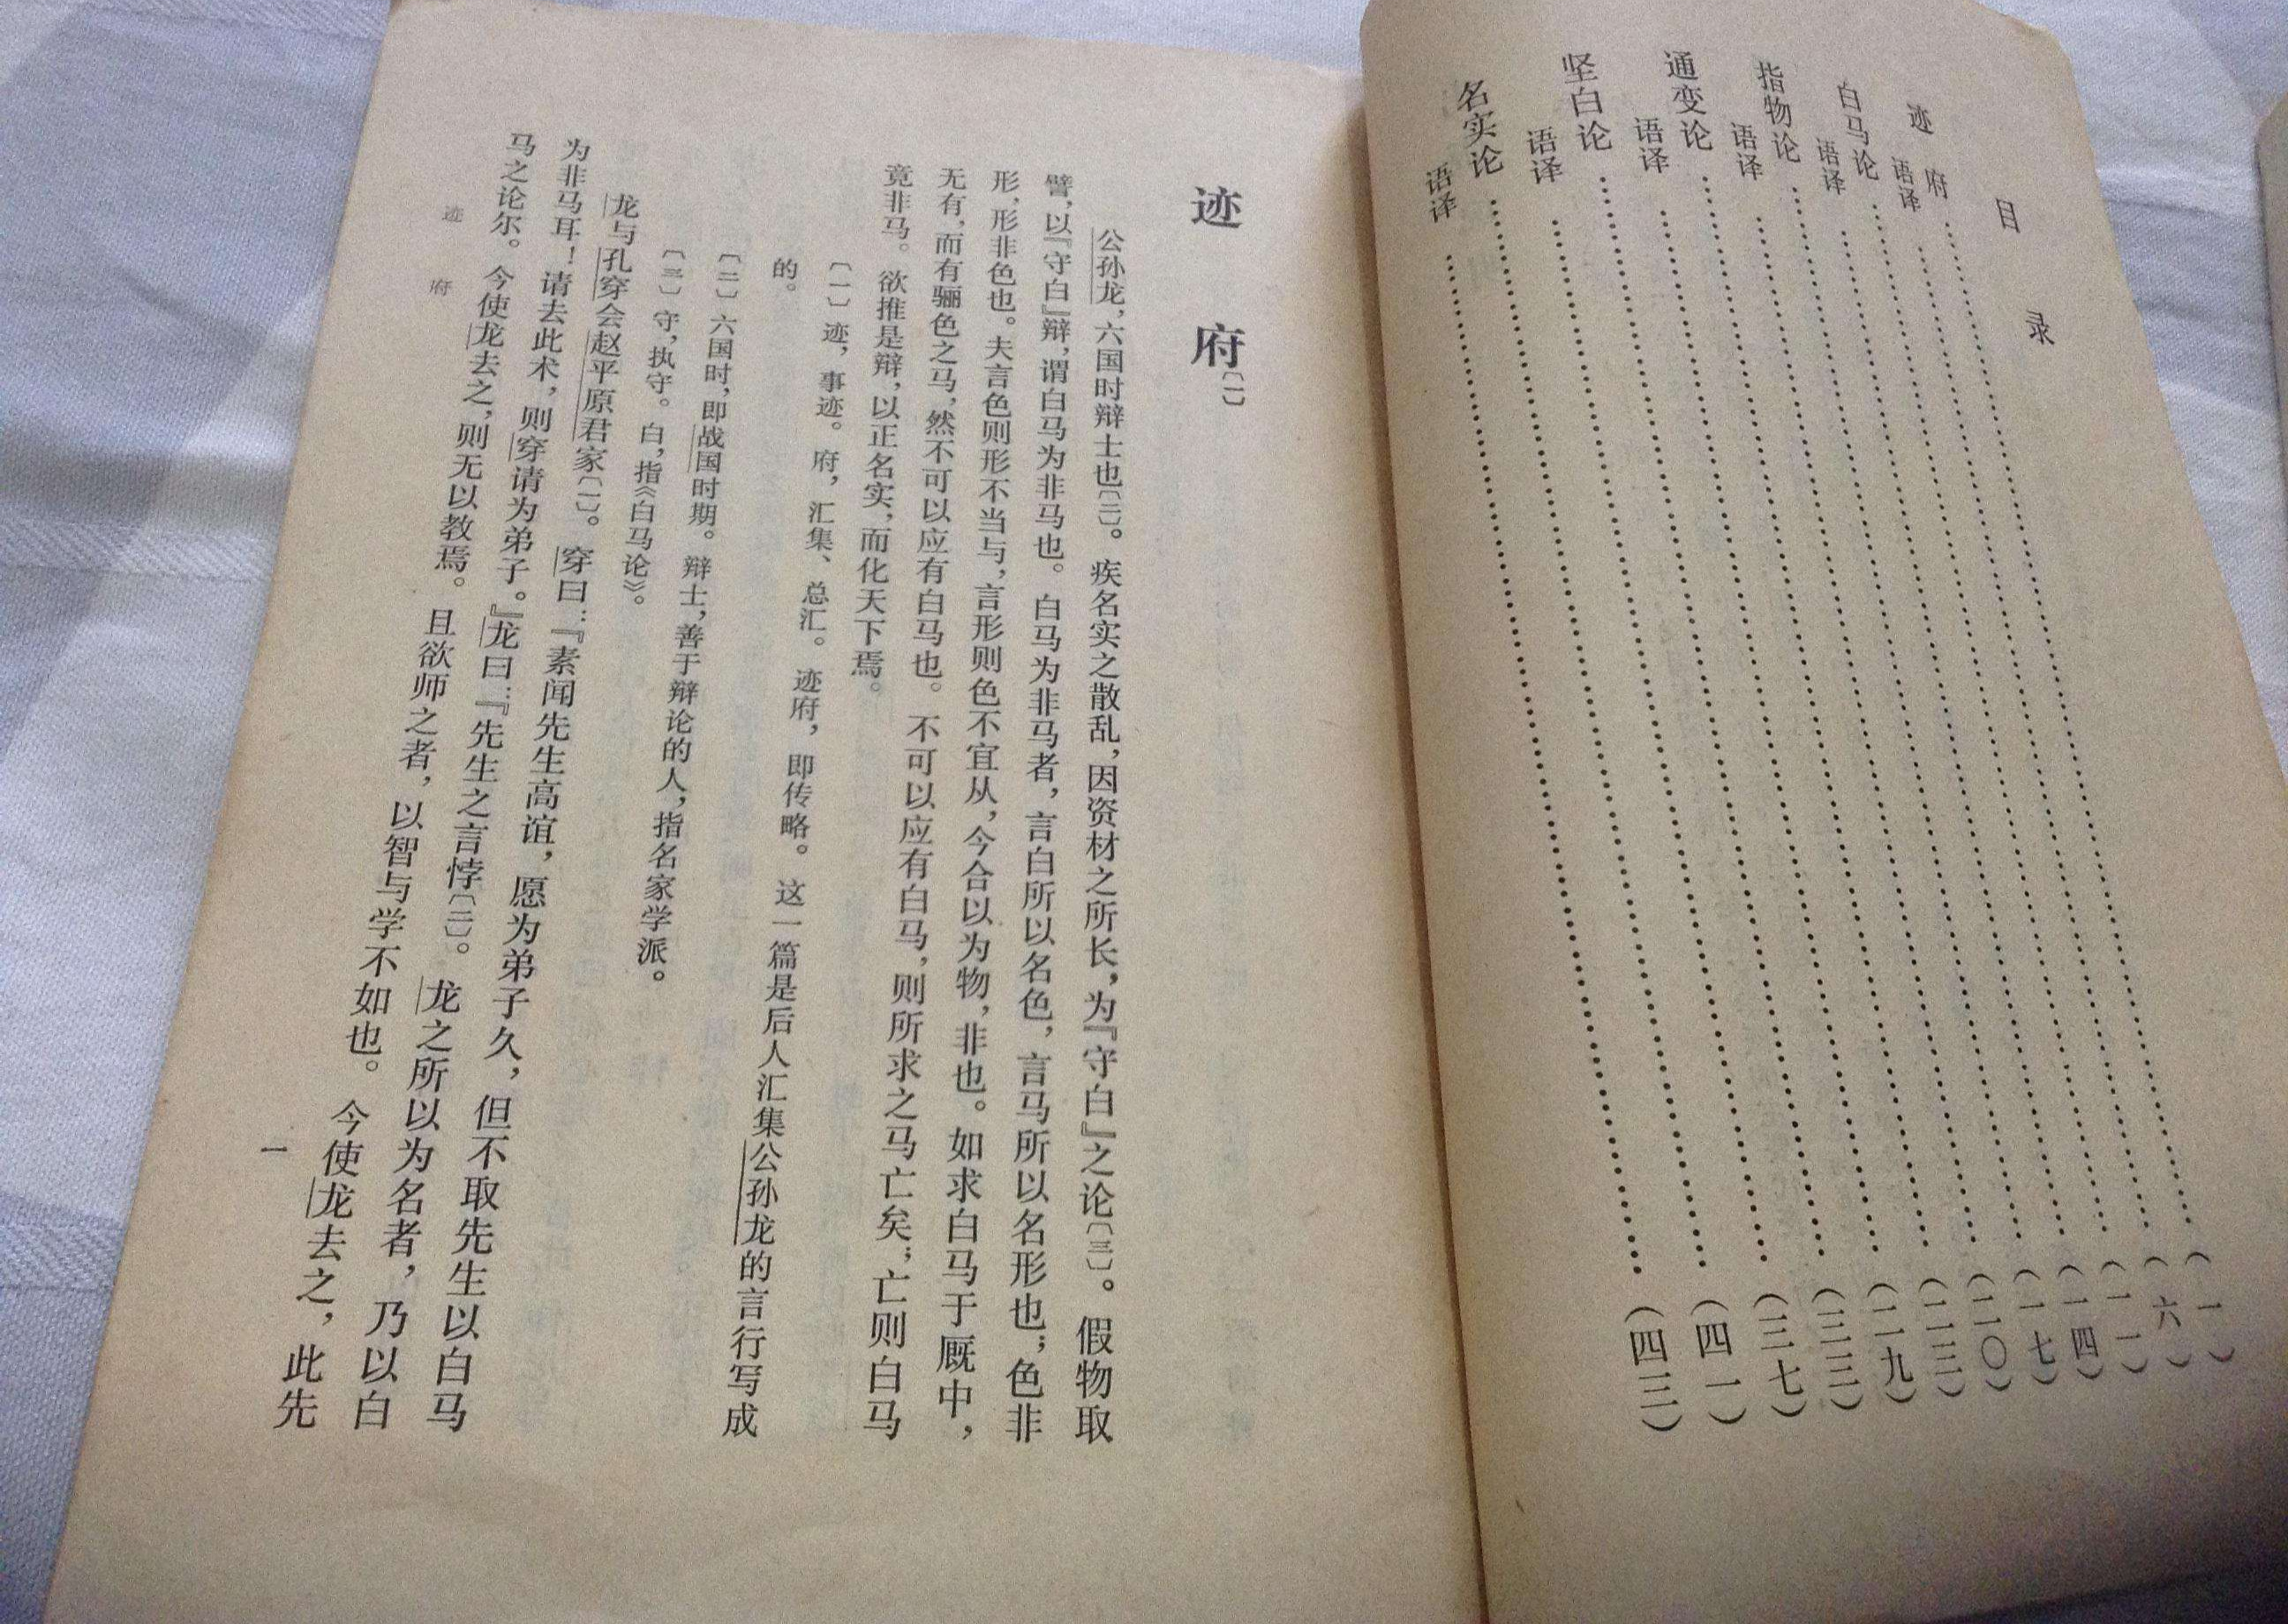 目 录
迹府……(一)
语译……(六)
白马论……(一一)
语译……(一四)
指物论……(一七)
语译……(二〇)
通变论……(二三)
语译……(二九)
坚白论……(三三)
语译……(三七)
名实论……(四一)
语译……(四三)
迹 府〔一〕
公孙龙，六国时辩士也〔二〕。疾名实之散乱，因资材之所长，为『守白』之论〔三〕。假物取
譬，以『守白』辩，谓白马为非马也。白马为非马者，言白所以名色，言马所以名形也；色非
形，形非色也。夫言色则形不当与，言形则色不宜从，今合以为物，非也。如求白马于厩中，
无有，而有骊色之马，然不可以应有白马也。不可以应有白马，则所求之马亡矣；亡则白马
竟非马。欲推是辩，以正名实，而化天下焉。
〔一〕迹，事迹。府，汇集、总汇。迹府，即传略。这一篇是后人汇集公孙龙的言行写成
的。
〔二〕六国时，即战国时期。辩士，善于辩论的人，指名家学派。
〔三〕守，执守。白，指《白马论》。
龙与孔穿会赵平原君家〔一〕。穿曰：『素闻先生高谊，愿为弟子久，但不取先生以白马
为非马耳！请去此术，则穿请为弟子。』龙曰：『先生之言悖〔二〕。龙之所以为名者，乃以白
马之论尔。今使龙去之，则无以教焉。且欲师之者，以智与学不如也。今使龙去之，此先
迹 府
一